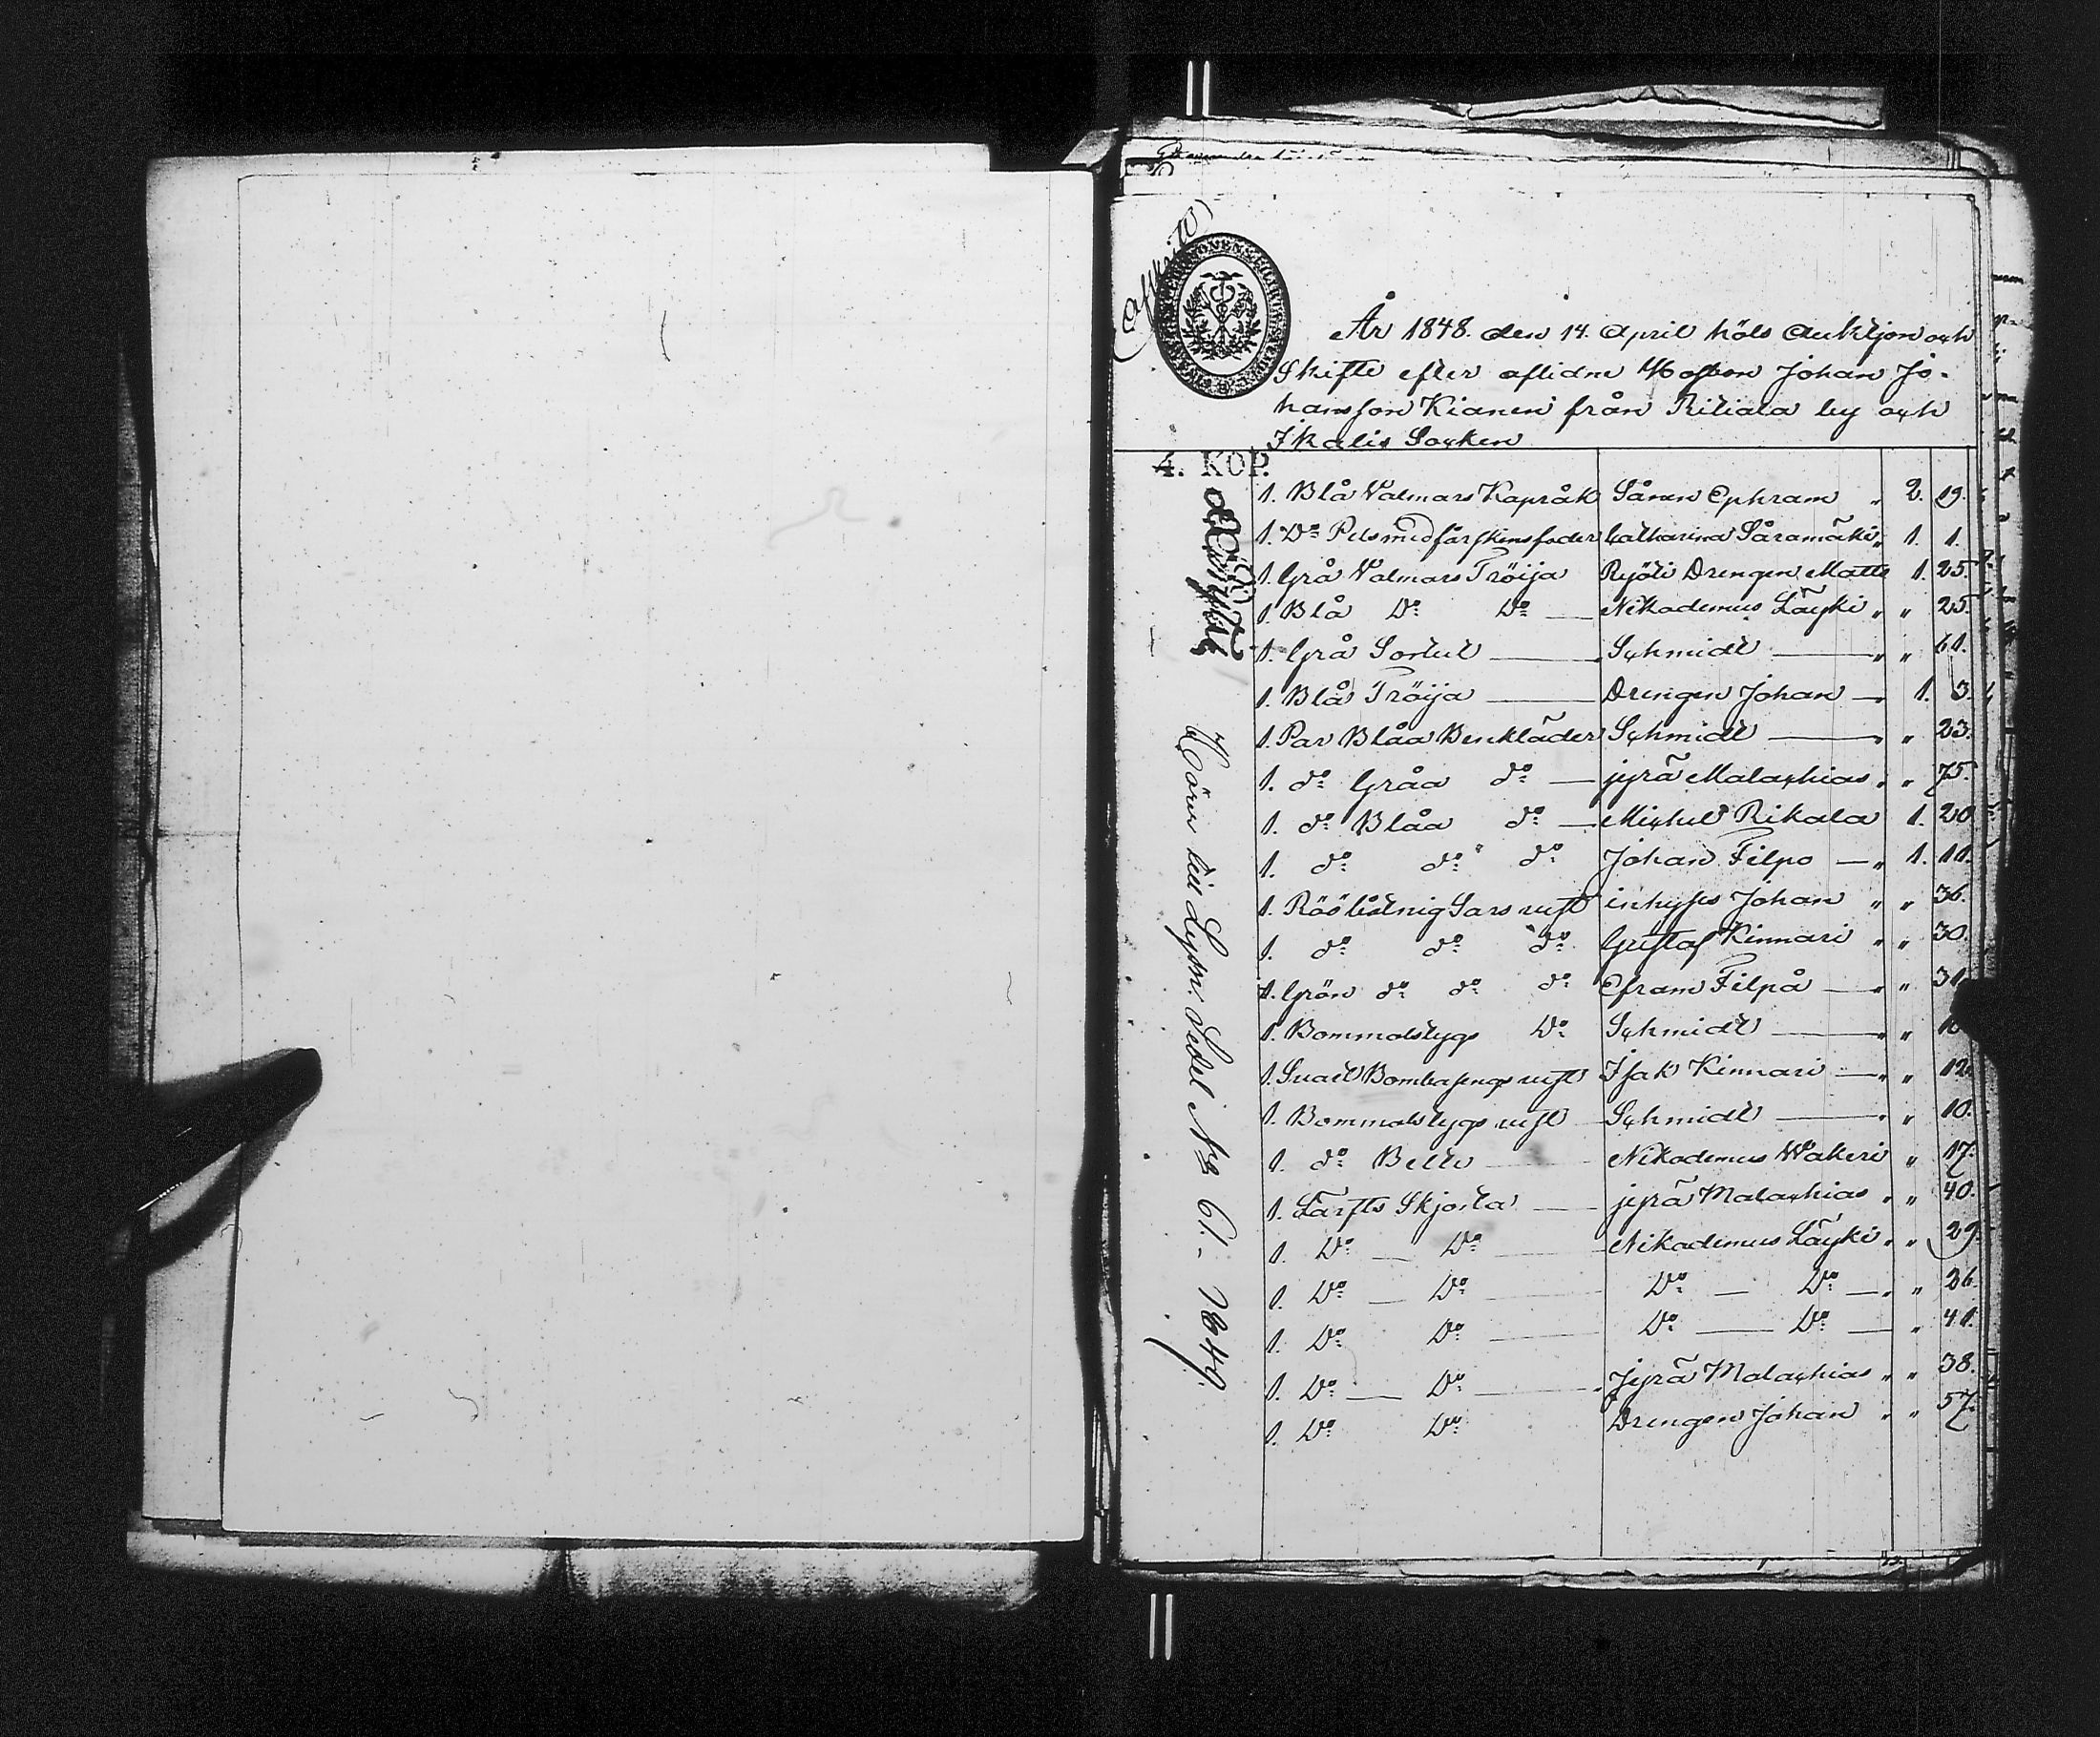 Afskrift
År 1848. den 14. April höls Auktjon och
Skifte efter aflidne Hofbon Johan Jo-
hansson Kianen från Riliala by och
Ikalis Socken
4. KOP.
Hörer till Lysn: Sedel № 61. 1849.
1. Blå Valmars Kapråk Såren Ephram " 2. 19.
1. Do Pels med fårskinsfoder Catharina Såramäki " 1. 1.
1. Grå Valmars Tröija Ryöti Drengen Matts 1. 25.
1. Blå Do Do — Nikademus Läyki " " 25.
1. Grå Sortut — Schmidt — " " 61.
1. Blå Tröija — Drengen Johan — 1. 3.
1. Par Blåa Benkläder Schmidt — " " 23.
1. do Gråa do — jyrä Malachias " " 75.
1. do Blåa do — Michel Rikala 1. 20
1. do do do Johan Filpo — " 1. 11.
1. Rös Sars vest inhyses Johan " " 36.
1. do do do Gustaf Kinnari " " 30.
1. Grön do do do Efram Filpå — " " 31
1. Bommolstygs Do Schmidt — " "
1. Svart Bombasengs vest Isak Kinnari — " " 12
1. Bommolstygs vest Schmidt — " " 10.
1. do Bette — Nikodemus Wakeri " 17.
1. Lärfts Skjorta — jyrä Malachias " " 40.
1. Do — Do — Nikademus Läyki " " 29.
1. Do — Do — Do — Do — " " 26.
1. Do Do — Do — Do — " 41.
1. Do — Do — Jyrä Malachias " " 38.
1. Do Do Drengen Johan " " 57.